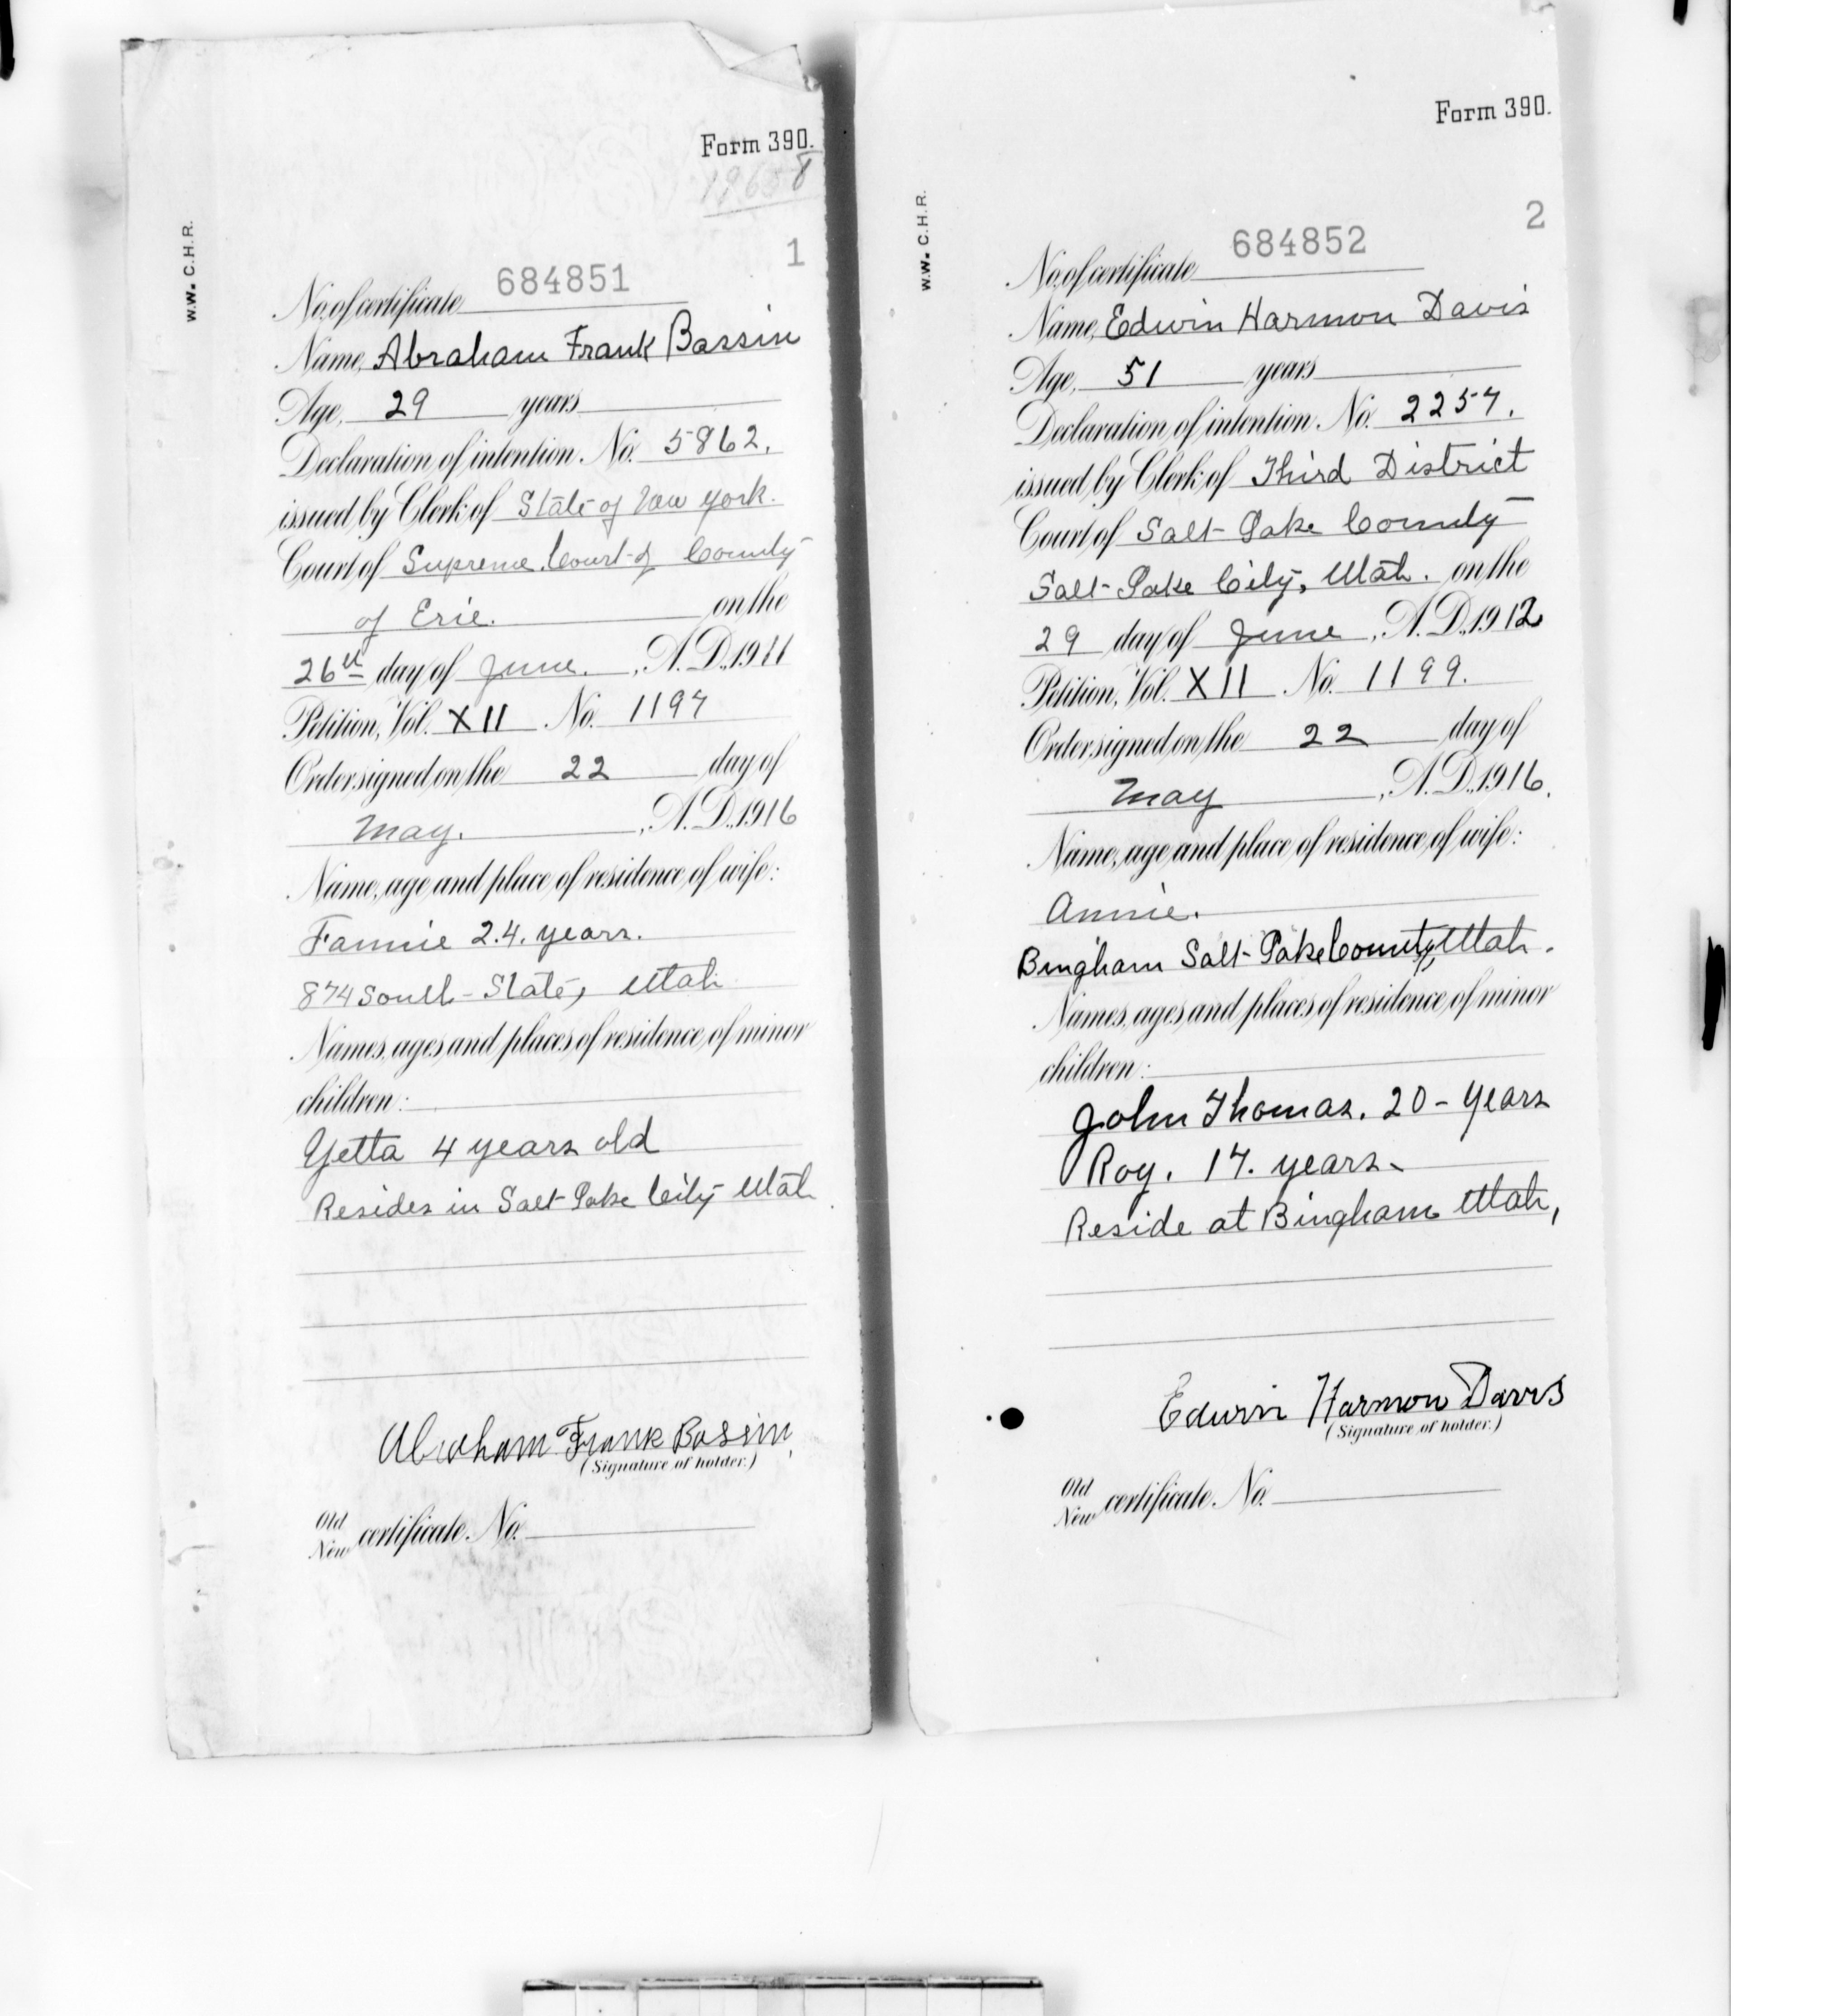 Form 390.
W.W. C.H.R.
1
No. of certificate 684851
Name, Abraham Frank Bassin
Age, 29 years
Declaration of intention No. 5862.
issued by Clerk of State of New York.
Court of Supreme Court of County
of Erie. on the
26th day of June. , A.D. 1911
Petition, Vol. XII No. 1197
Order signed on the 22 day of
May. , A.D. 1916
Name, age and place of residence of wife:
Fannie 2.4. years.
874 South State, Utah
Names, ages and places of residence of minor
children:
Yetta 4 years old
Resides in Salt Lake City Utah
Abraham Frank Basin,
(Signature of holder.)
Old
New certificate No.
Form 390.
W.W. C.H.R.
2
No. of certificate 684852
Name, Edwin Harmon Davis
Age, 51 years
Declaration of intention No. 2257.
issued by Clerk of Third District
Court of Salt Lake County
Salt Lake City, Utah. on the
29 day of June , A.D. 1912
Petition, Vol. XII No. 1199.
Order signed on the 22 day of
May , A.D. 1916.
Name, age and place of residence of wife:
Annie.
Bingham Salt Lake County, Utah.
Names, ages and places of residence of minor
children:
John Thomas. 20 - Years
Roy. 17. years.
Reside at Bingham Utah,
Edwin Harmon Davis
(Signature of holder.)
Old
New certificate No.